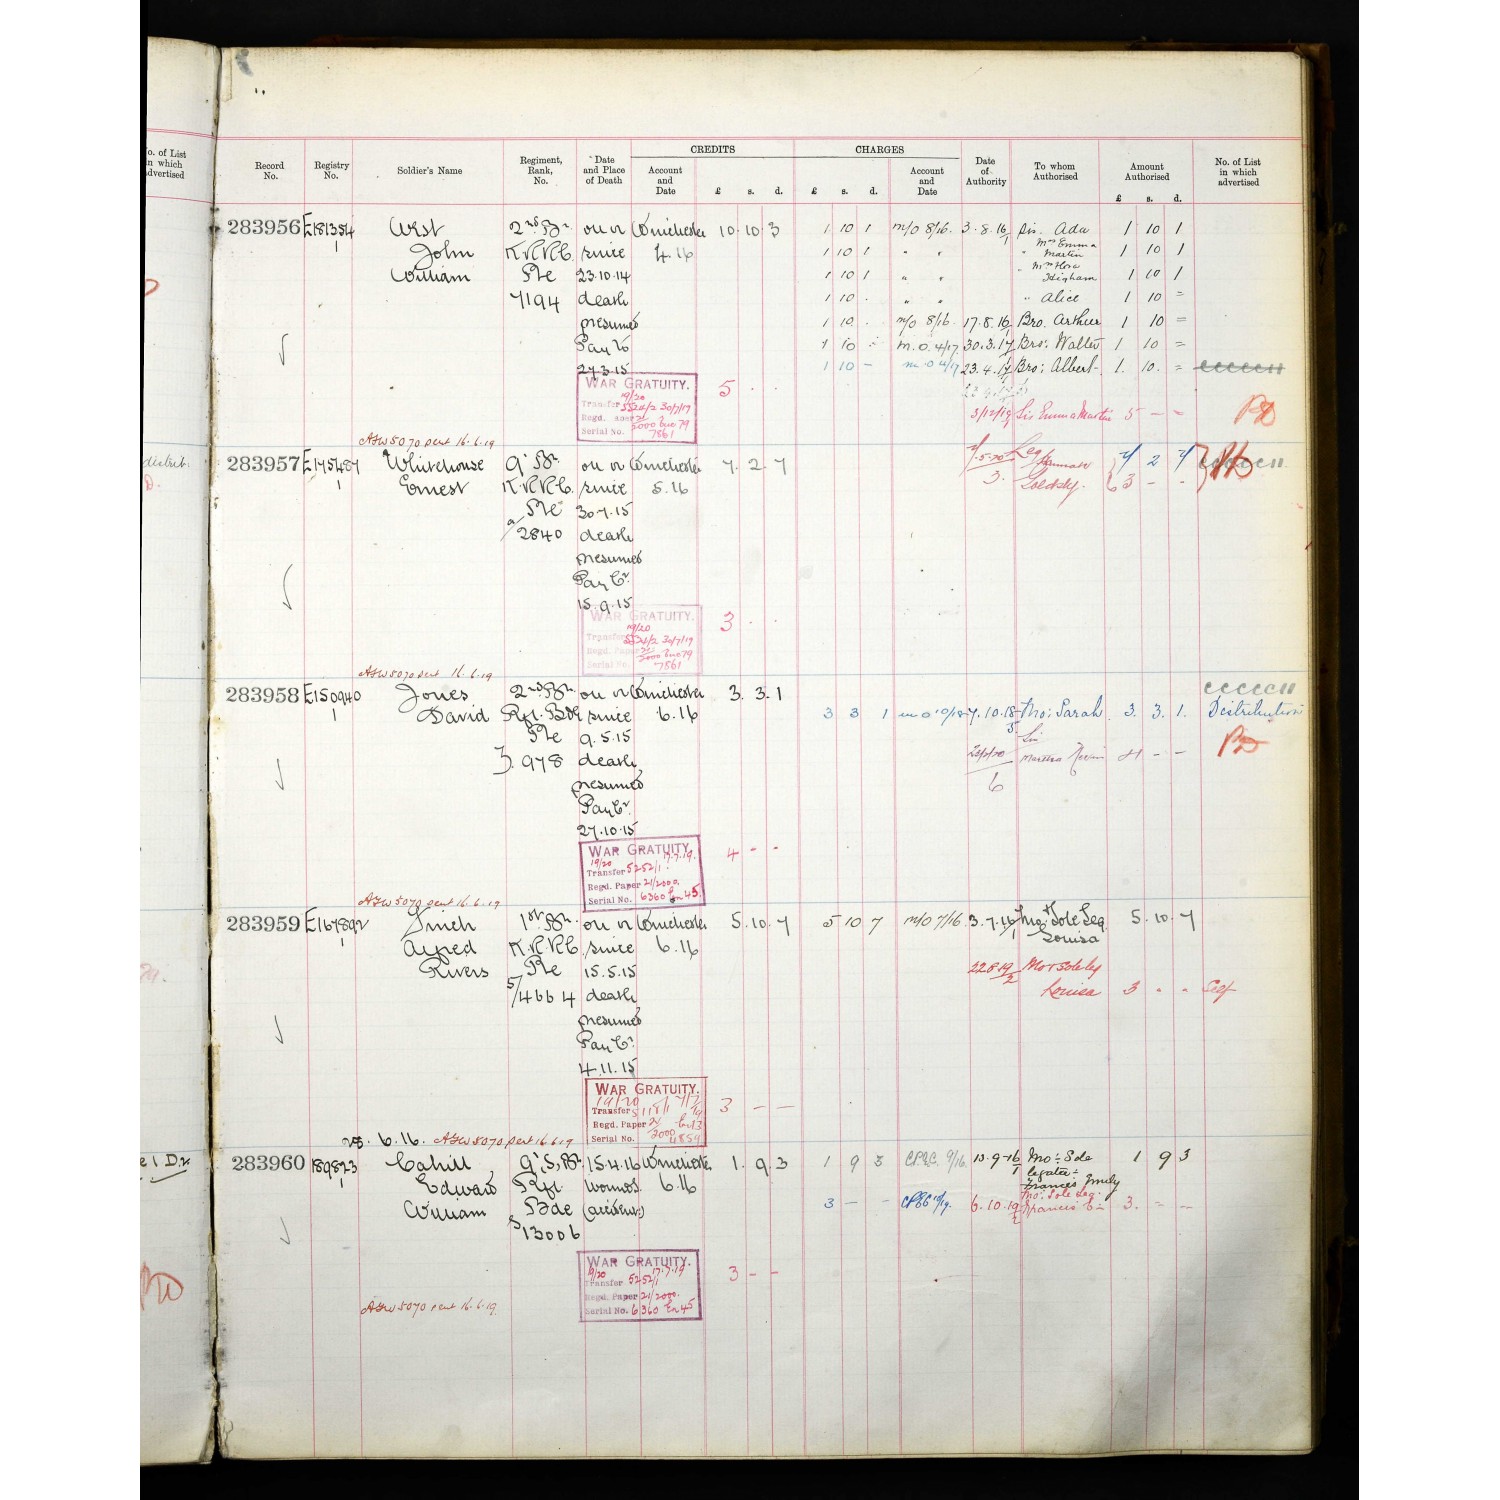 No. of List in which advertised
Record No.
Registry No.
Soldier's Name
Regiment, Rank, No.
Date and Place of Death
CREDITS
Account and Date
£ s. d.
CHARGES
£ s. d.
Account and Date
Date of Authority
To whom Authorised
Amount Authorised
£ s. d.
No. of List in which advertised
283956 E181354 West 2nd Bn on or Winchester 10.10.3 1 10 1 m/o 8/16. 3.8.16 Sis. Ada 1 10 1
1 John K.R.R.C. since 4.16 1 10 1 " " " Mrs Emma Martin 1 10 1
William Pte 23.10.14 1 10 1 " " " Mrs Flora Higham 1 10 1
7194 death 1 10 . " " " Alice 1 10 =
presumed 1 10 . m/o 8/16. 17.8.16 Bro. Arthur 1 10 =
1 10 m.o. 4/17 30.3.17 Bro: Walter 1 10 =
27.3.15 1 10 - m.o 4/17 23.4.17 Bro: Albert 1. 10. =
WAR GRATUITY. 5 . .
19/20
Transfer 5524/2 30/7/17
Regd.
Serial No. 7861
3/12/19 Sis Emma Martin 5 - =
AFW 5070 sent 16.6.19
distrib.
283957 E175487 Whitehouse 9th Bn on or Winchester 7.2.7 Leg Hannah 7 2 7
1 Ernest K.R.R.C. since 5.16 3. 3 - -
Pte 30.7.15
2840 death
presumed
Pay Cr.
15.9.15
WAR GRATUITY. 3 . .
19/20
Transfer 5524/2 30/7/17
Regd. Paper
Serial No. 7861
AFW 5070 sent 16.6.19
283958 E150940 Jones 2nd Bn on or Winchester 3.3.1
1 David Rfl. Bde since 6.16 3 3 1 m o 10/18 7.10.18 Mo: Sarah 3. 3. 1. Distribution
Pte 9.5.15 Sis
978 death Martha 4 - -
presumed 6
Pay Cr.
27.10.15
WAR GRATUITY. 4 - -
19/20 17.7.19.
Transfer 5252/1
Regd. Paper 21/2000.
Serial No. 6360 En 45.
AFW 5070 sent 16.6.19
283959 E167892 Finch 1st Bn. on or Winchester 5.10.7 5 10 7 m/o 7/16 3.7.16 Mo & Sole Leg 5.10.7
1 Alfred K.R.R.C. since 6.16 Louisa
Rivers Pte 15.5.15 22.8.19 Mo & Sole Leg
5/4664 death Louisa 3 . .
presumed
Pay Cr.
4.11.15
WAR GRATUITY. 3 - -
19/20
Transfer
Regd. Paper 2000
Serial No. 4859
6.16. AFW 5070 sent 16.6.19
283960 189823 Cahill 9th S, Bn 15.4.16 Winchester 1.9.3 1 9 3 9/16. 13-9-16 Mo: Sole 1 9 3
1 Edward Rfl. wounds 6.16 legatee: Frances Emily
William Bde (accident) 3 - - 6.10.19 Mo: Sole Leg. Frances E 3. = -
S/13006
WAR GRATUITY. 3 - -
19/20 17.7.19
Transfer 5252/1
Regd. Paper 21/2000.
Serial No. 6360 En 45
AFW 5070 sent 16.6.19.